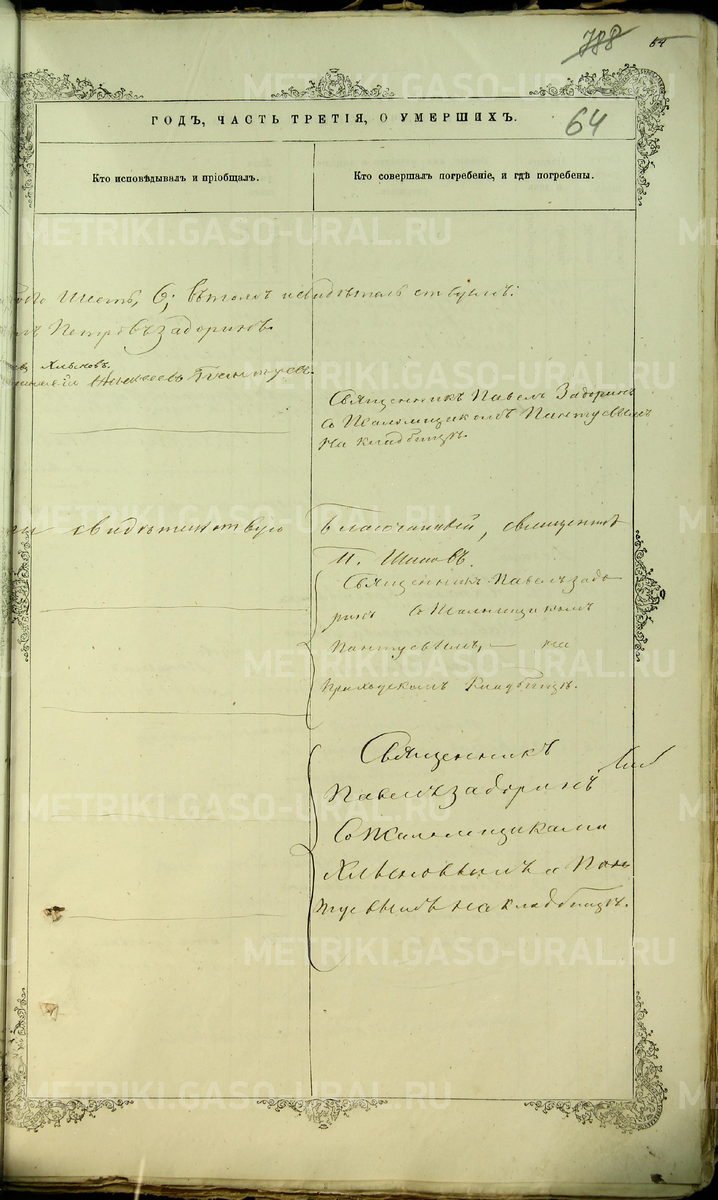 788
64
ГОДЪ, ЧАСТЬ ТРЕТІЯ, О УМЕРШИХЪ.
64
Кто исповѣдывалъ и пріобщалъ.
Кто совершалъ погребеніе, и гдѣ погребены.
Шесть, 6; въ томъ и свидѣтельствуемъ:
Петровъ Задоринъ.
Хлыновъ.
Алексѣевъ Пантуевъ.
Священникъ Павелъ Задоринъ
со Псаломщикомъ Пантуевымъ
на кладбищѣ.
свидѣтельствую Благочинный, священникъ
П. Шиповъ.
Священникъ Павелъ Задо-
ринъ со Псаломщикомъ
Пантуевымъ, — на
приходскомъ кладбищѣ.
Священникъ
Павелъ Задоринъ
со Псаломщиками
Хлыновымъ и Пан-
туевымъ на кладбищѣ.
METRIKI.GASO-URAL.RU